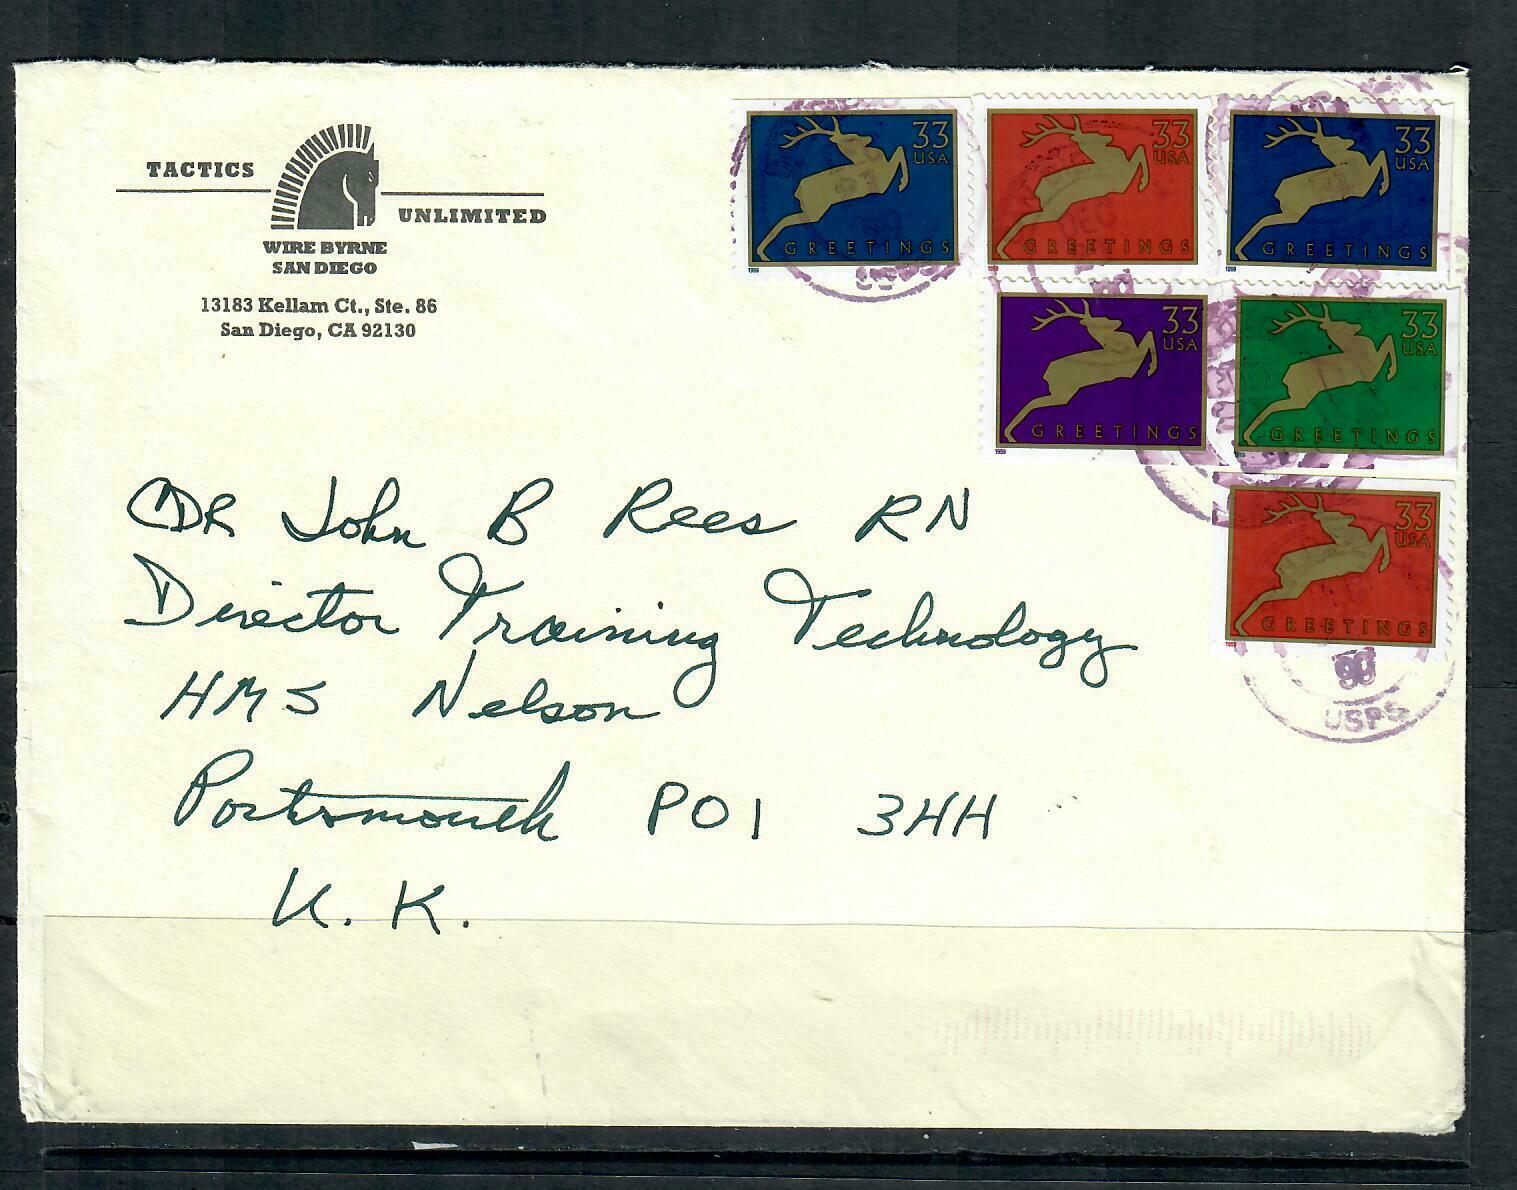 TACTICS
UNLIMITED
WIRE BYRNE
SAN DIEGO
13183 Kellam Ct., Ste. 86
San Diego, CA 92130
33
USA
GREETINGS
1999
33
USA
GREETINGS
1999
33
USA
GREETINGS
1999
33
USA
GREETINGS
1999
33
USA
GREETINGS
33
USA
GREETINGS
1999
DEC
99
USPS
CDR John B Rees RN
Director Training Technology
HMS Nelson
Portsmouth PO1 3HH
U.K.